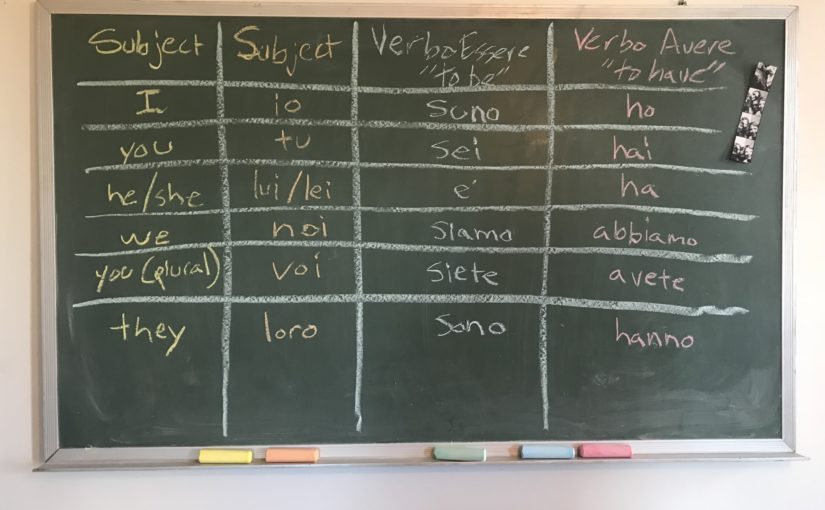 Subject Subject Verbo Essere Verbo Avere
"to be" "to have"
I io sono ho
you tu sei hai
he/she lui/lei é ha
we noi siamo abbiamo
you (plural) voi siete avete
they loro sono hanno